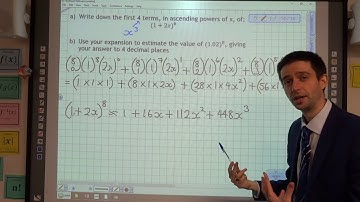 a) Write down the first 4 terms, in ascending powers of x, of:
(1 + 2x)⁸
x³
b) Use your expansion to estimate the value of (1.02)⁸, giving
your answer to 4 decimal places.
(8 0)(1)⁸(2x)⁰ + (8 1)(1)⁷(2x)¹ + (8 2)(1)⁶(2x)² + (8 3)(1)⁵
=(1×1×1) + (8×1×2x) + (28×1×4x²) + (56×1
(1+2x)⁸ ≈ 1 + 16x + 112x² + 448x³